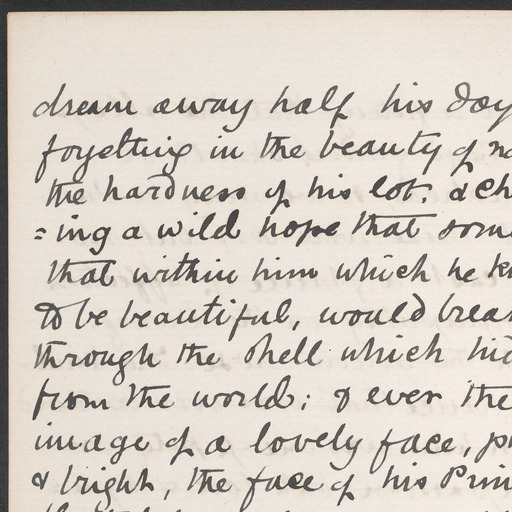 dream away half his day
forgetting in the beauty of
the hardness of his lot. &
=ing a wild hope that
that within him which he
to be beautiful, would
through the shell which
from the world; & ever the
image of a lovely face,
& bright, the face of his